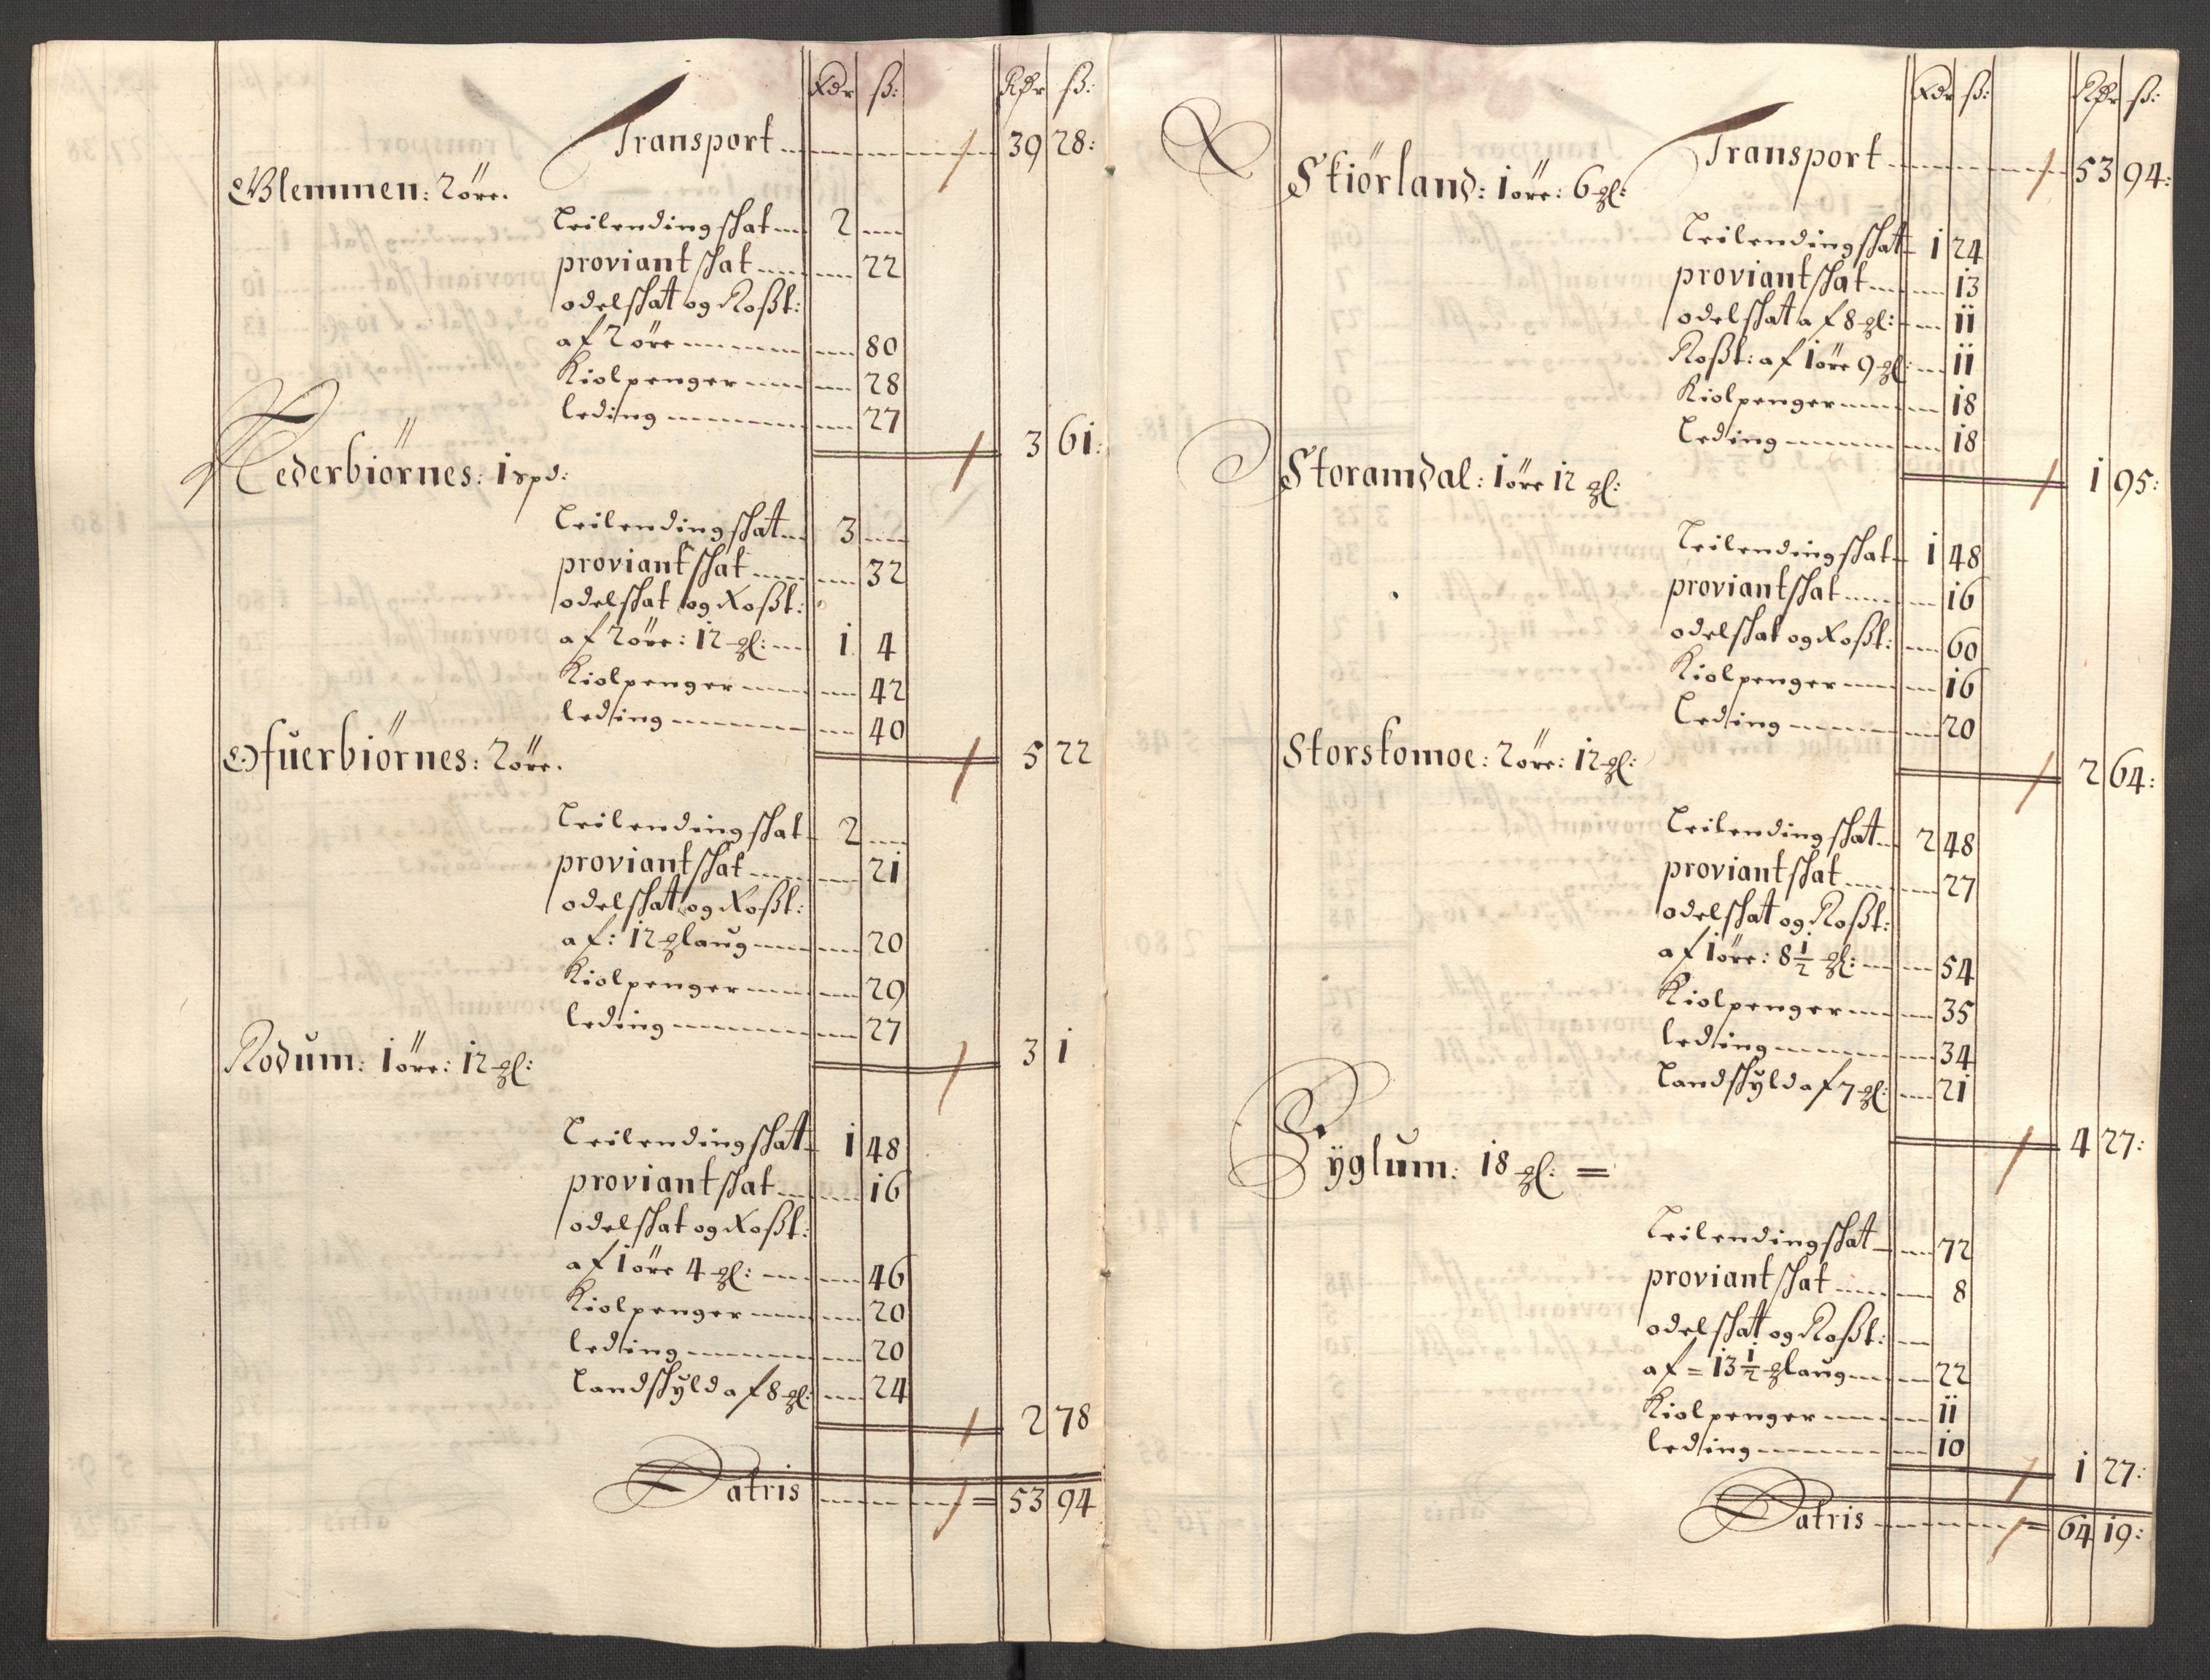 Rdr ß: Rdr ß:
Transport 39 28:
Blemmen: 2 öre.
Leilending skat 2
proviant skat 22
odelskat og Roßt:
af 2 öre 80
Kiolpenger 28
leding 27
3 61:
Nederbiörnes: 1 spd:
Leilending skat 3
proviant skat 32
odelskat og Roßt:
af 2 öre: 12 gl: 1 4
Kiolpenger 42
leding 40
5 22
Ofuerbiörnes: 2 öre.
Leilending skat 2
proviant skat 21
odelskat og Roßt:
af: 12 glaug 20
Kiolpenger 29
leding 27
3 1
Rodum: 1 öre: 12 gl:
Leilending skat 1 48
proviant skat 16
odelskat og Roßt:
af 1 öre 4 gl: 46
Kiolpenger 20
leding 20
Landskyld af 8 gl: 24
2 78
Latris = 53 94
Rdr ß: Rdr ß:
Transport 53 94:
Skiörland: 1 öre: 6 gl:
Leilending skat 1 24
proviant skat 13
odelskat af 8 gl: 11
Roßt: af 1 öre 9 gl: 11
Kiolpenger 18
Leding 18
1 95:
Storamdal: 1 öre 12 gl:
Leilending skat 1 48
proviant skat 16
odelskat og Roßt: 60
Kiolpenger 16
Leding 20
2 64:
Storskomoe: 2 öre: 12 gl:
Leilending skat 2 48
proviant skat 27
odelskat og Roßt:
af 1 öre: 8 1/2 gl: 54
Kiolpenger 35
leding 34
Landskyld af 7 gl: 21
4 27:
Fÿglum: 18 gl: =
Leilending skat 72
proviant skat 8
odelskat og Roßt:
af = 13 1/2 glaug 22
Kiolpenger 11
leding 10
1 27:
Latris = 64 19: